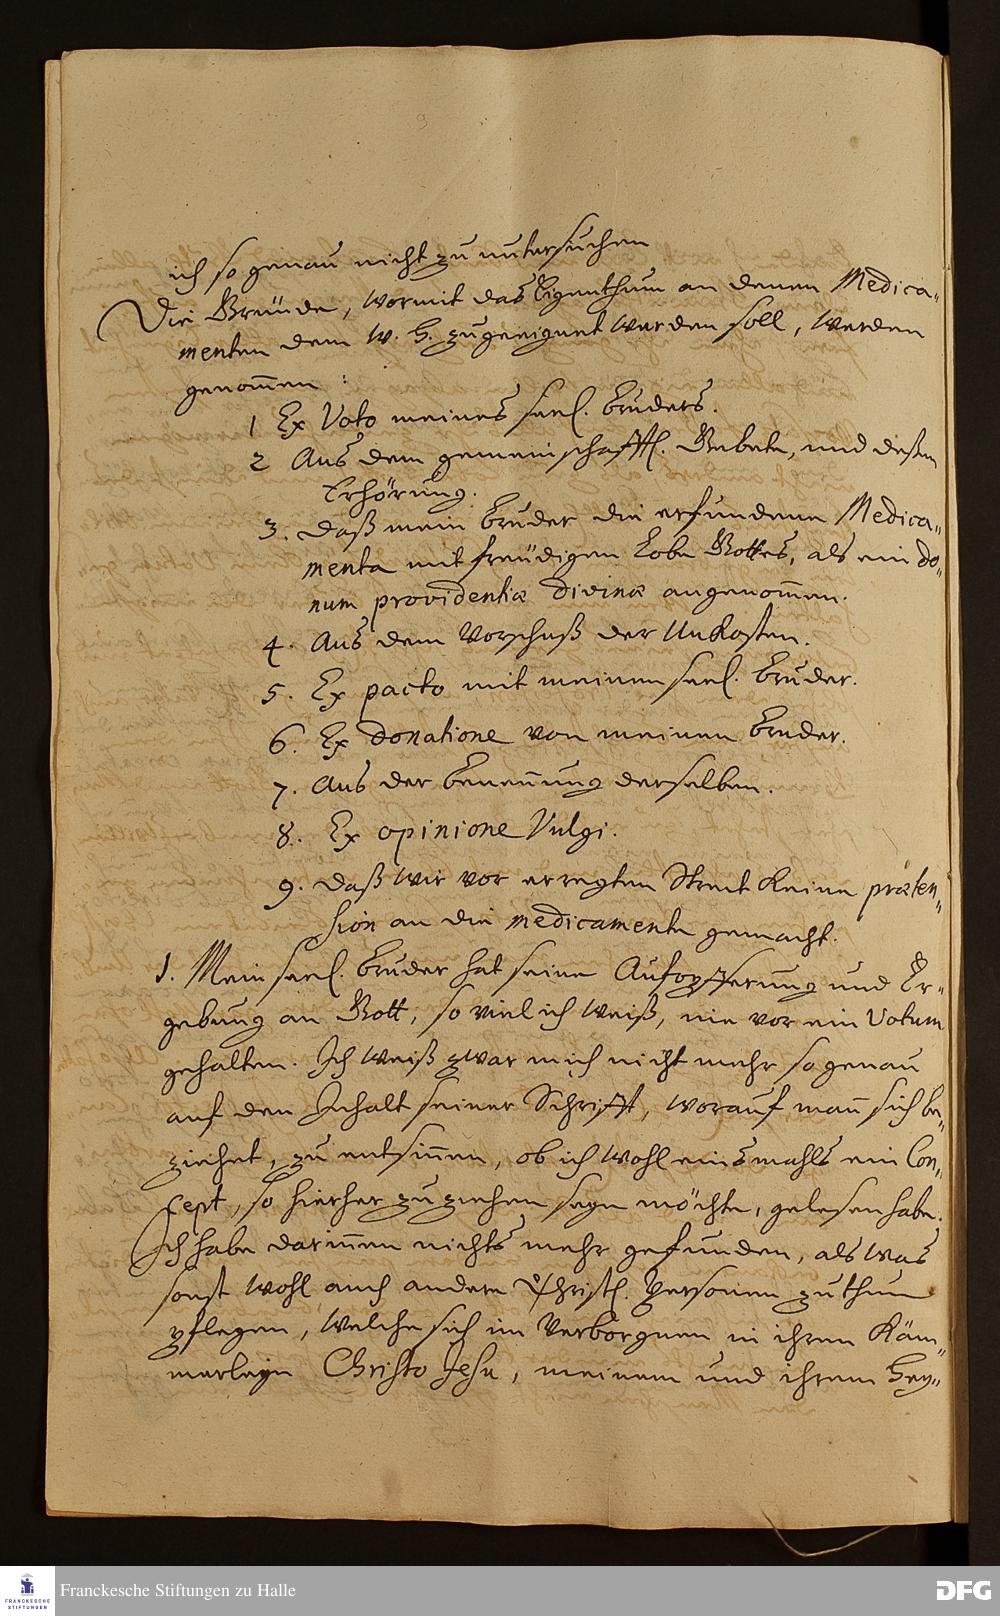 ich so genau nicht zu untersuchen
Die Gründe, wormit das Eigenthum an denen Medica-
menten dem W. H. zugeeignet werden soll, werden
genommen:
1 Ex Voto meines seel. Bruders.
2 Aus dem gemeinschafftl. Gebete, und deßen
Erhörung.
3. Daß mein Bruder die erfundene Medica-
menta mit freudigem Lobe Gottes, als ein do-
num providentiæ divinæ angenommen.
4. Aus dem Vorschuß der Unkosten.
5. Ex pacto mit meinem seel. Bruder.
6. Ex donatione von meinen Bruder.
7. Aus der Benennung derselben.
8. Ex opinione Vulgi.
9. Daß wir vor erregten Streit keine præten-
sion an die medicamenta gemacht.
1. Mein seel. Bruder hat seine Auffopfferung und Er-
gebung an Gott, so viel ich weiß, nie vor ein Votum
gehalten. Ich weiß zwar mich nicht mehr so genau
auf den Inhalt seiner Schrifft, worauf man sich be-
ziehet, zu entsinnen, ob ich wohl einsmahls ein Con-
cept, so hierher zu ziehen seyn möchte, gelesen habe.
Ich habe darinnen nichts mehr gefunden, als was
sonst wohl auch andere Christl. Personen zu thun
pflegen, welche sich im Verborgnen in ihren Käm-
merleyn Christo Jesu, meinem und ihrem Hey-
Franckesche Stiftungen zu Halle
FRANCKESCHE
STIFTUNGEN
DFG